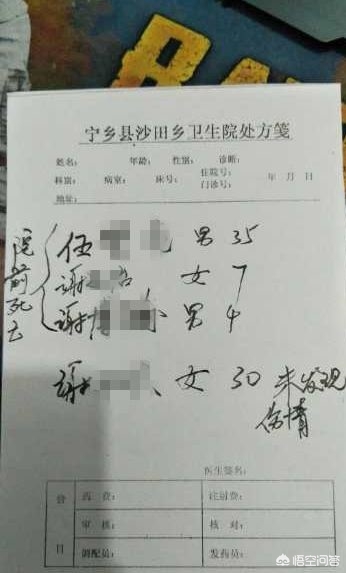 宁乡县沙田乡卫生院处方笺
姓名: 年龄: 性别: 诊断:
科别: 病室: 床号: 住院号: 门诊号: 年 月 日
地址:
院前死亡
伍 男 35
谢 女 7
谢 男 4
谢 女 30 未发现
伤情
医生签名:
药费: 注射费:
审核: 核对:
调配员: 发药员:
日
悟空问答